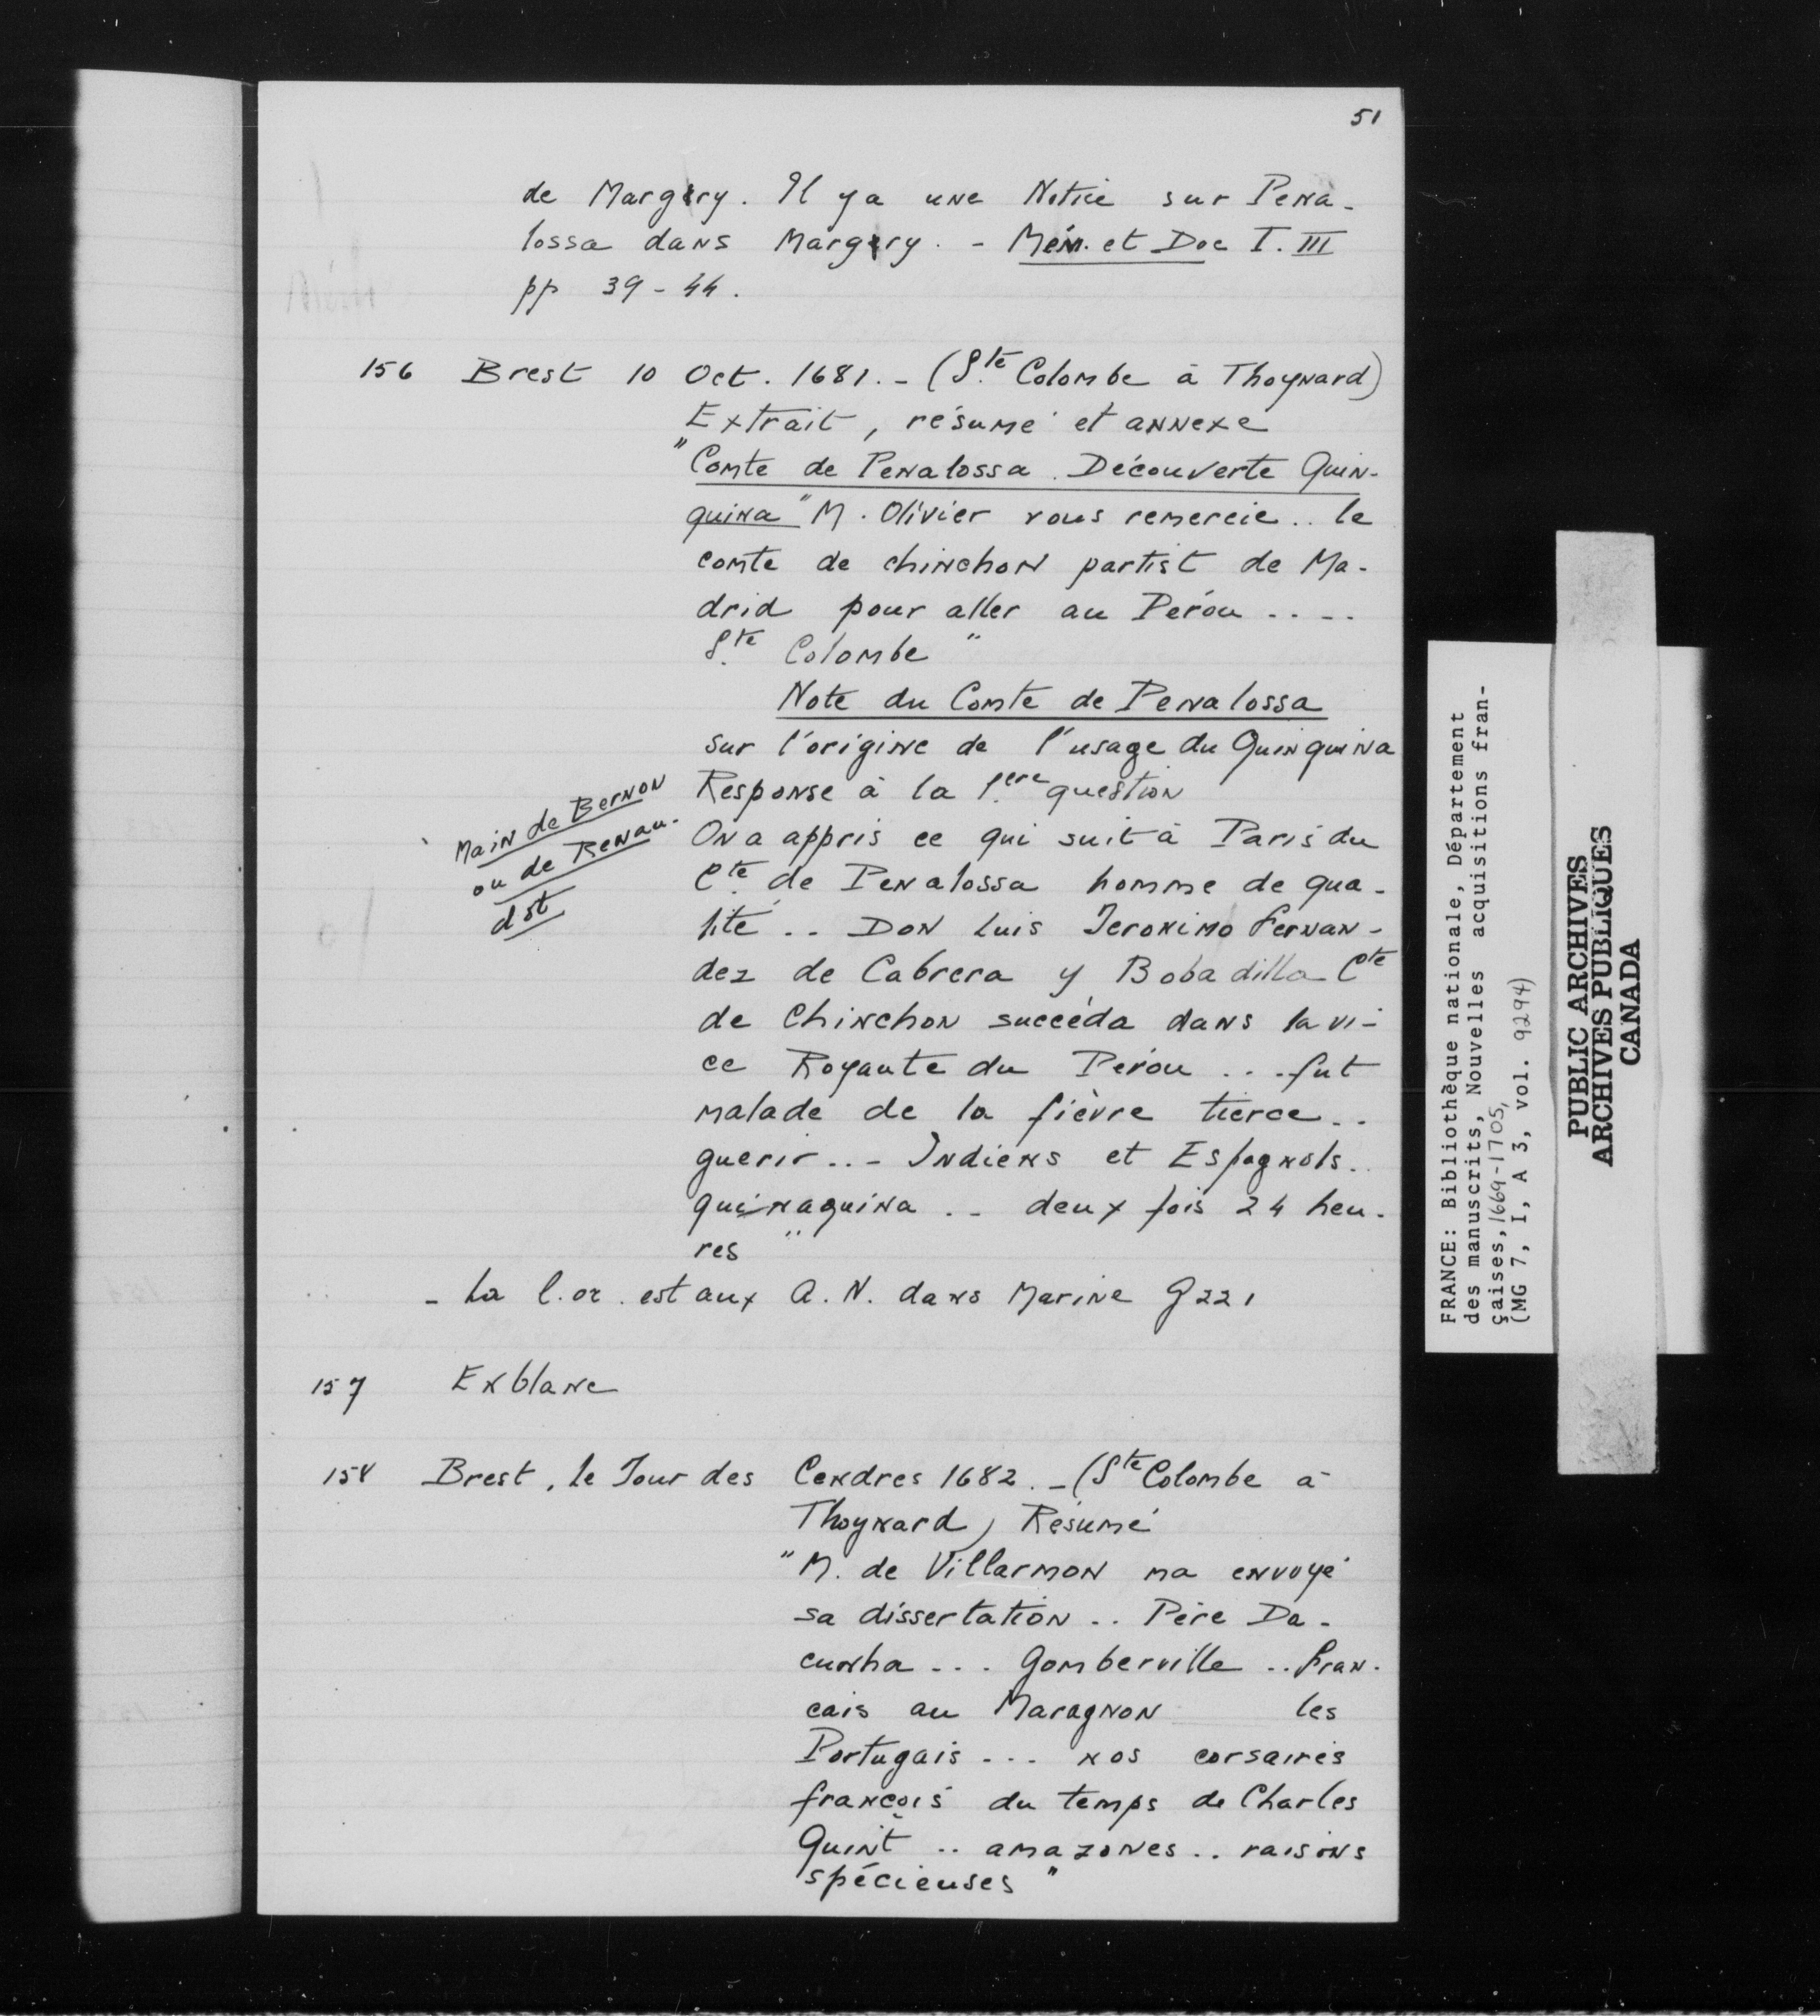 51
de Margry. Il y a une Notice sur Pena-
lossa dans Margry. - Mém. et Doc T. III
pp 39-44.
156 Brest 10 Oct. 1681. - (Ste Colombe à Thoynard)
Extrait, résumé et annexe
"Comte de Penalossa. Découverte Quin-
quina" M. Olivier vous remercie.. le
comte de chinchon partist de Ma-
drid pour aller au Pérou ....
Ste Colombe"
Note du Comte de Penalossa
sur l'origine de l'usage du Quinquina
Response à la 1.ere question
Main de Bernon
ou de Renau-
dot
On a appris ce qui suit à Paris du
Cte de Penalossa homme de qua-
lité .. Don Luis Jeronimo Fernan-
dez de Cabrera y Bobadilla Cte
de Chinchon succéda dans la vi-
ce Royauté du Pérou ... fut
malade de la fièvre tierce..
guerir..- Indiens et Espagnols..
quinaquina .. deux fois 24 heu-
res"
- La l. or. est aux A.N. dans Marine G 221
157 En blanc
158 Brest, le Jour des Cendres 1682. - (Ste Colombe à
Thoynard) Résumé
"M. de Villarmon ma envoyé
sa dissertation .. Père Da-
cunha ... Gomberville .. fran-
cais au Maragnon les
Portugais ... nos corsaires
françois du temps de Charles
Quint .. amazones .. raisons
spécieuses"
FRANCE: Bibliothèque nationale, Département
des manuscrits, Nouvelles acquisitions fran-
çaises, 1669-1705,
(MG 7, I, A 3, vol. 9294)
PUBLIC ARCHIVES
ARCHIVES PUBLIQUES
CANADA